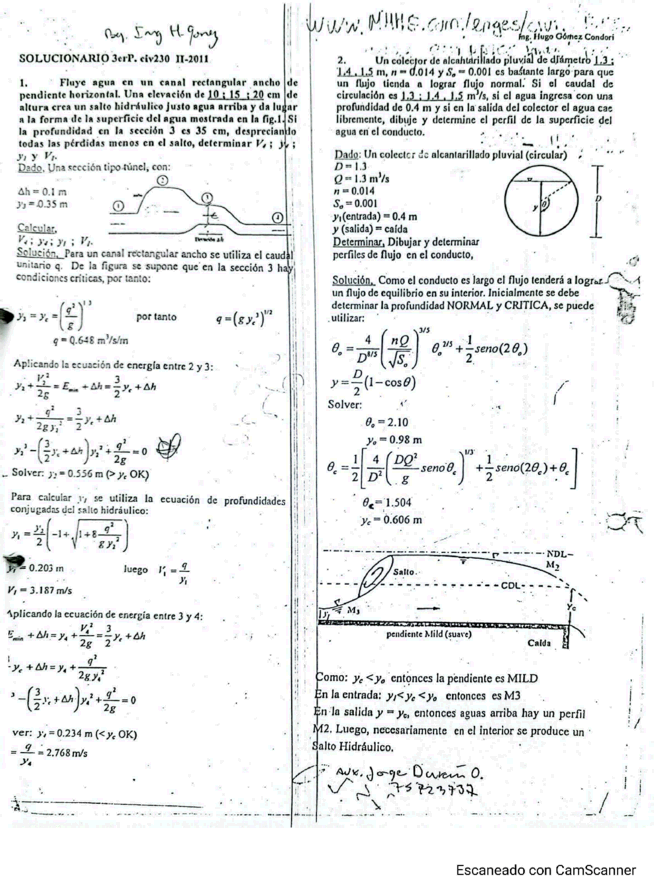 By Ing H Gomez
SOLUCIONARIO 3erP. civ230 II-2011
1. Fluye agua en un canal rectangular ancho de
pendiente horizontal. Una elevación de 10 ; 15 ; 20 cm de
altura crea un salto hidráulico justo agua arriba y da lugar
a la forma de la superficie del agua mostrada en la fig.1. Si
la profundidad en la sección 3 es 35 cm, despreciando
todas las pérdidas menos en el salto, determinar V₄ ; y₄ ;
y₁ y V₁.
Dado. Una sección tipo túnel, con:
Δh = 0.1 m
y₃ = 0.35 m
Calcular.
V₄ ; y₄ ; y₁ ; V₁.
Solución. Para un canal rectangular ancho se utiliza el caudal
unitario q. De la figura se supone que en la sección 3 hay
condiciones críticas, por tanto:
y₃ = y_c = (q²/g)^(1/3) por tanto q = (g y_c³)^(1/2)
q = 0.648 m³/s/m
Aplicando la ecuación de energía entre 2 y 3:
y₂ + V₂²/2g = E_min + Δh = 3/2 y_c + Δh
y₂ + q²/(2g y₂²) = 3/2 y_c + Δh
y₂³ − (3/2 y_c + Δh) y₂² + q²/2g = 0
Solver: y₂ = 0.556 m (> y_c OK)
Para calcular y₁ se utiliza la ecuación de profundidades
conjugadas del salto hidráulico:
y₁ = y₂/2 (−1 + √(1 + 8 q²/(g y₂³)))
y₁ = 0.203 m luego V₁ = q/y₁
V₁ = 3.187 m/s
Aplicando la ecuación de energía entre 3 y 4:
E_min + Δh = y₄ + V₄²/2g = 3/2 y_c + Δh
y_c + Δh = y₄ + q²/(2g y₄²)
³ − (3/2 y_c + Δh) y₄² + q²/2g = 0
ver: y₄ = 0.234 m (< y_c OK)
= q/y₄ = 2.768 m/s
Ing. Hugo Gómez Condori
2. Un colector de alcantarillado pluvial de diámetro 1.3 ;
1.4 , 1.5 m, n = 0.014 y Sₒ = 0.001 es bastante largo para que
un flujo tienda a lograr flujo normal. Si el caudal de
circulación es 1.3 ; 1.4 , 1.5 m³/s, si el agua ingresa con una
profundidad de 0.4 m y si en la salida del colector el agua cae
libremente, dibuje y determine el perfil de la superficie del
agua en el conducto.
Dado: Un colector de alcantarillado pluvial (circular)
D = 1.3
Q = 1.3 m³/s
n = 0.014
Sₒ = 0.001
y₁(entrada) = 0.4 m
y (salida) = caída
Determinar, Dibujar y determinar
perfiles de flujo en el conducto,
D
y
θ
Solución. Como el conducto es largo el flujo tenderá a lograr
un flujo de equilibrio en su interior. Inicialmente se debe
determinar la profundidad NORMAL y CRITICA, se puede
utilizar:
θₒ = 4/D^(8/5) (nQ/√Sₒ)^(3/5) θₒ^(2/5) + 1/2 seno(2θₒ)
y = D/2 (1 − cosθ)
Solver:
θₒ = 2.10
yₒ = 0.98 m
θ_c = 1/2 [4/D² (DQ²/g senoθ_c)^(1/3) + 1/2 seno(2θ_c) + θ_c]
θ_c = 1.504
y_c = 0.606 m
NDL
M₂
Salto
CDL
y_c
y₁
M₃
pendiente Mild (suave)
Caída
Como: y_c < yₒ entonces la pendiente es MILD
En la entrada: y₁< y_c < yₒ entonces es M3
En la salida y = y_c, entonces aguas arriba hay un perfil
M2. Luego, necesariamente en el interior se produce un
Salto Hidráulico.
Aux. Jorge Duran O.
75723737
Escaneado con CamScanner